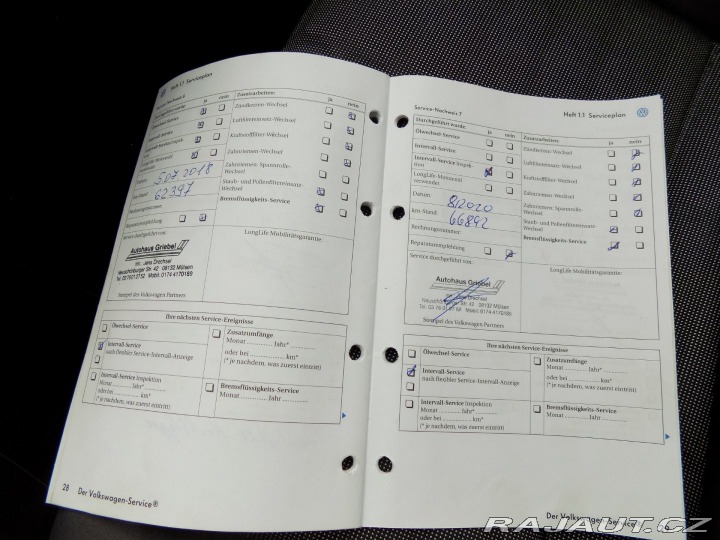 Heft 1.1 Serviceplan
ja nein
Zusatzarbeiten: ja nein
Zündkerzen-Wechsel
Luftfiltereinsatz-Wechsel
Kraftstofffilter-Wechsel
Zahnriemen-Wechsel
Zahnriemen- Spannrolle-
Wechsel
Staub- und Pollenfiltereinsatz-
Wechsel
Bremsflüssigkeits-Service
5.07.2018
62397
Service durchgeführt von:
LongLife Mobilitätsgarantie:
Autohaus Griebel
Inh. Jens Drechsel
Neuschönburger Str. 42 08132 Mülsen
Stempel des Volkswagen Partners
Ihre nächsten Service-Ereignisse
Ölwechsel-Service
Intervall-Service
nach flexibler Service-Intervall-Anzeige
Intervall-Service Inspektion
Monat ............ Jahr*............
oder bei ............ km*
(* je nachdem, was zuerst eintritt)
Zusatzumfänge
Monat ............ Jahr*............
oder bei ............ km*
(* je nachdem, was zuerst eintritt)
Bremsflüssigkeits-Service
Monat ............ Jahr............
28 Der Volkswagen-Service®
Service-Nachweis 7
Heft 1.1 Serviceplan
Durchgeführt wurde: ja nein
Ölwechsel-Service
Intervall-Service
Intervall-Service Inspek-
tion
LongLife-Motorenöl
verwendet
Datum:
8/2020
km-Stand:
66892
Rechnungsnummer:
Reparaturempfehlung
Service durchgeführt von:
Zusatzarbeiten: ja nein
Zündkerzen-Wechsel
Luftfiltereinsatz-Wechsel
Kraftstofffilter-Wechsel
Zahnriemen-Wechsel
Zahnriemen- Spannrolle-
Wechsel
Staub- und Pollenfiltereinsatz-
Wechsel
Bremsflüssigkeits-Service
LongLife Mobilitätsgarantie:
Autohaus Griebel
Stempel des Volkswagen Partners
Ihre nächsten Service-Ereignisse
Ölwechsel-Service
Intervall-Service
nach flexibler Service-Intervall-Anzeige
Intervall-Service Inspektion
Monat ............ Jahr*............
oder bei ............ km*
(* je nachdem, was zuerst eintritt)
Zusatzumfänge
Monat ............ Jahr*............
oder bei ............ km*
(* je nachdem, was zuerst eintritt)
Bremsflüssigkeits-Service
Monat ............ Jahr............
Der Volkswagen-Service®
RAJAUT.CZ